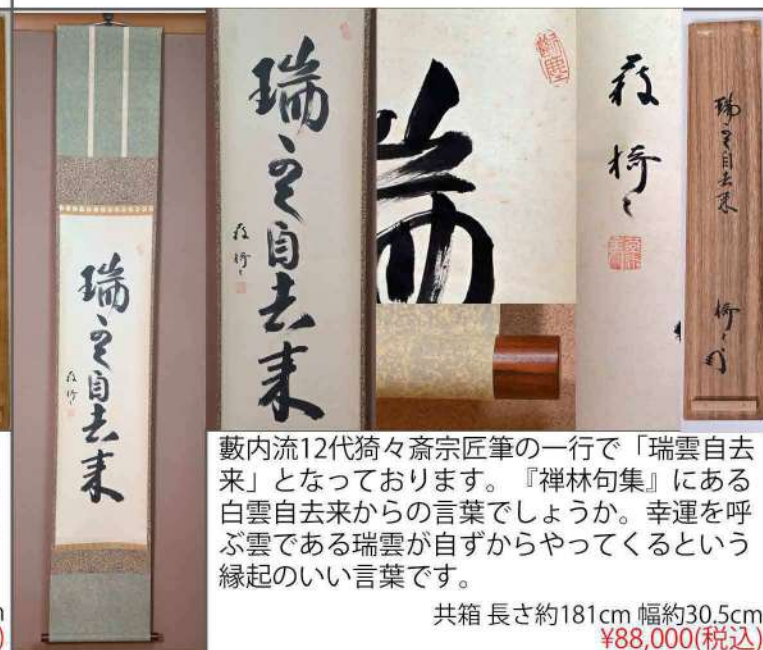 瑞雲自去来
薮猗々
瑞雲自去来
薮猗々
薮猗々
瑞雲自去来
猗々
藪内流12代猗々斎宗匠筆の一行で「瑞雲自去
来」となっております。『禅林句集』にある
白雲自去来からの言葉でしょうか。幸運を呼
ぶ雲である瑞雲が自ずからやってくるという
縁起のいい言葉です。
共箱 長さ約181cm 幅約30.5cm
¥88,000(税込)